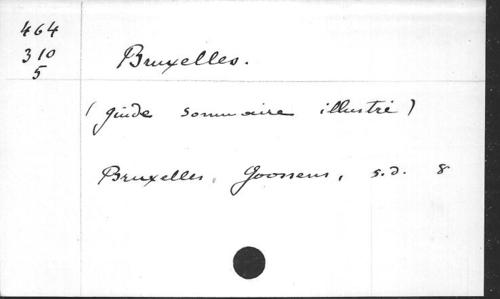 464
310
5
Bruxelles.
(guide sommaire illustré)
Bruxelles, Goossens, s.d. 8